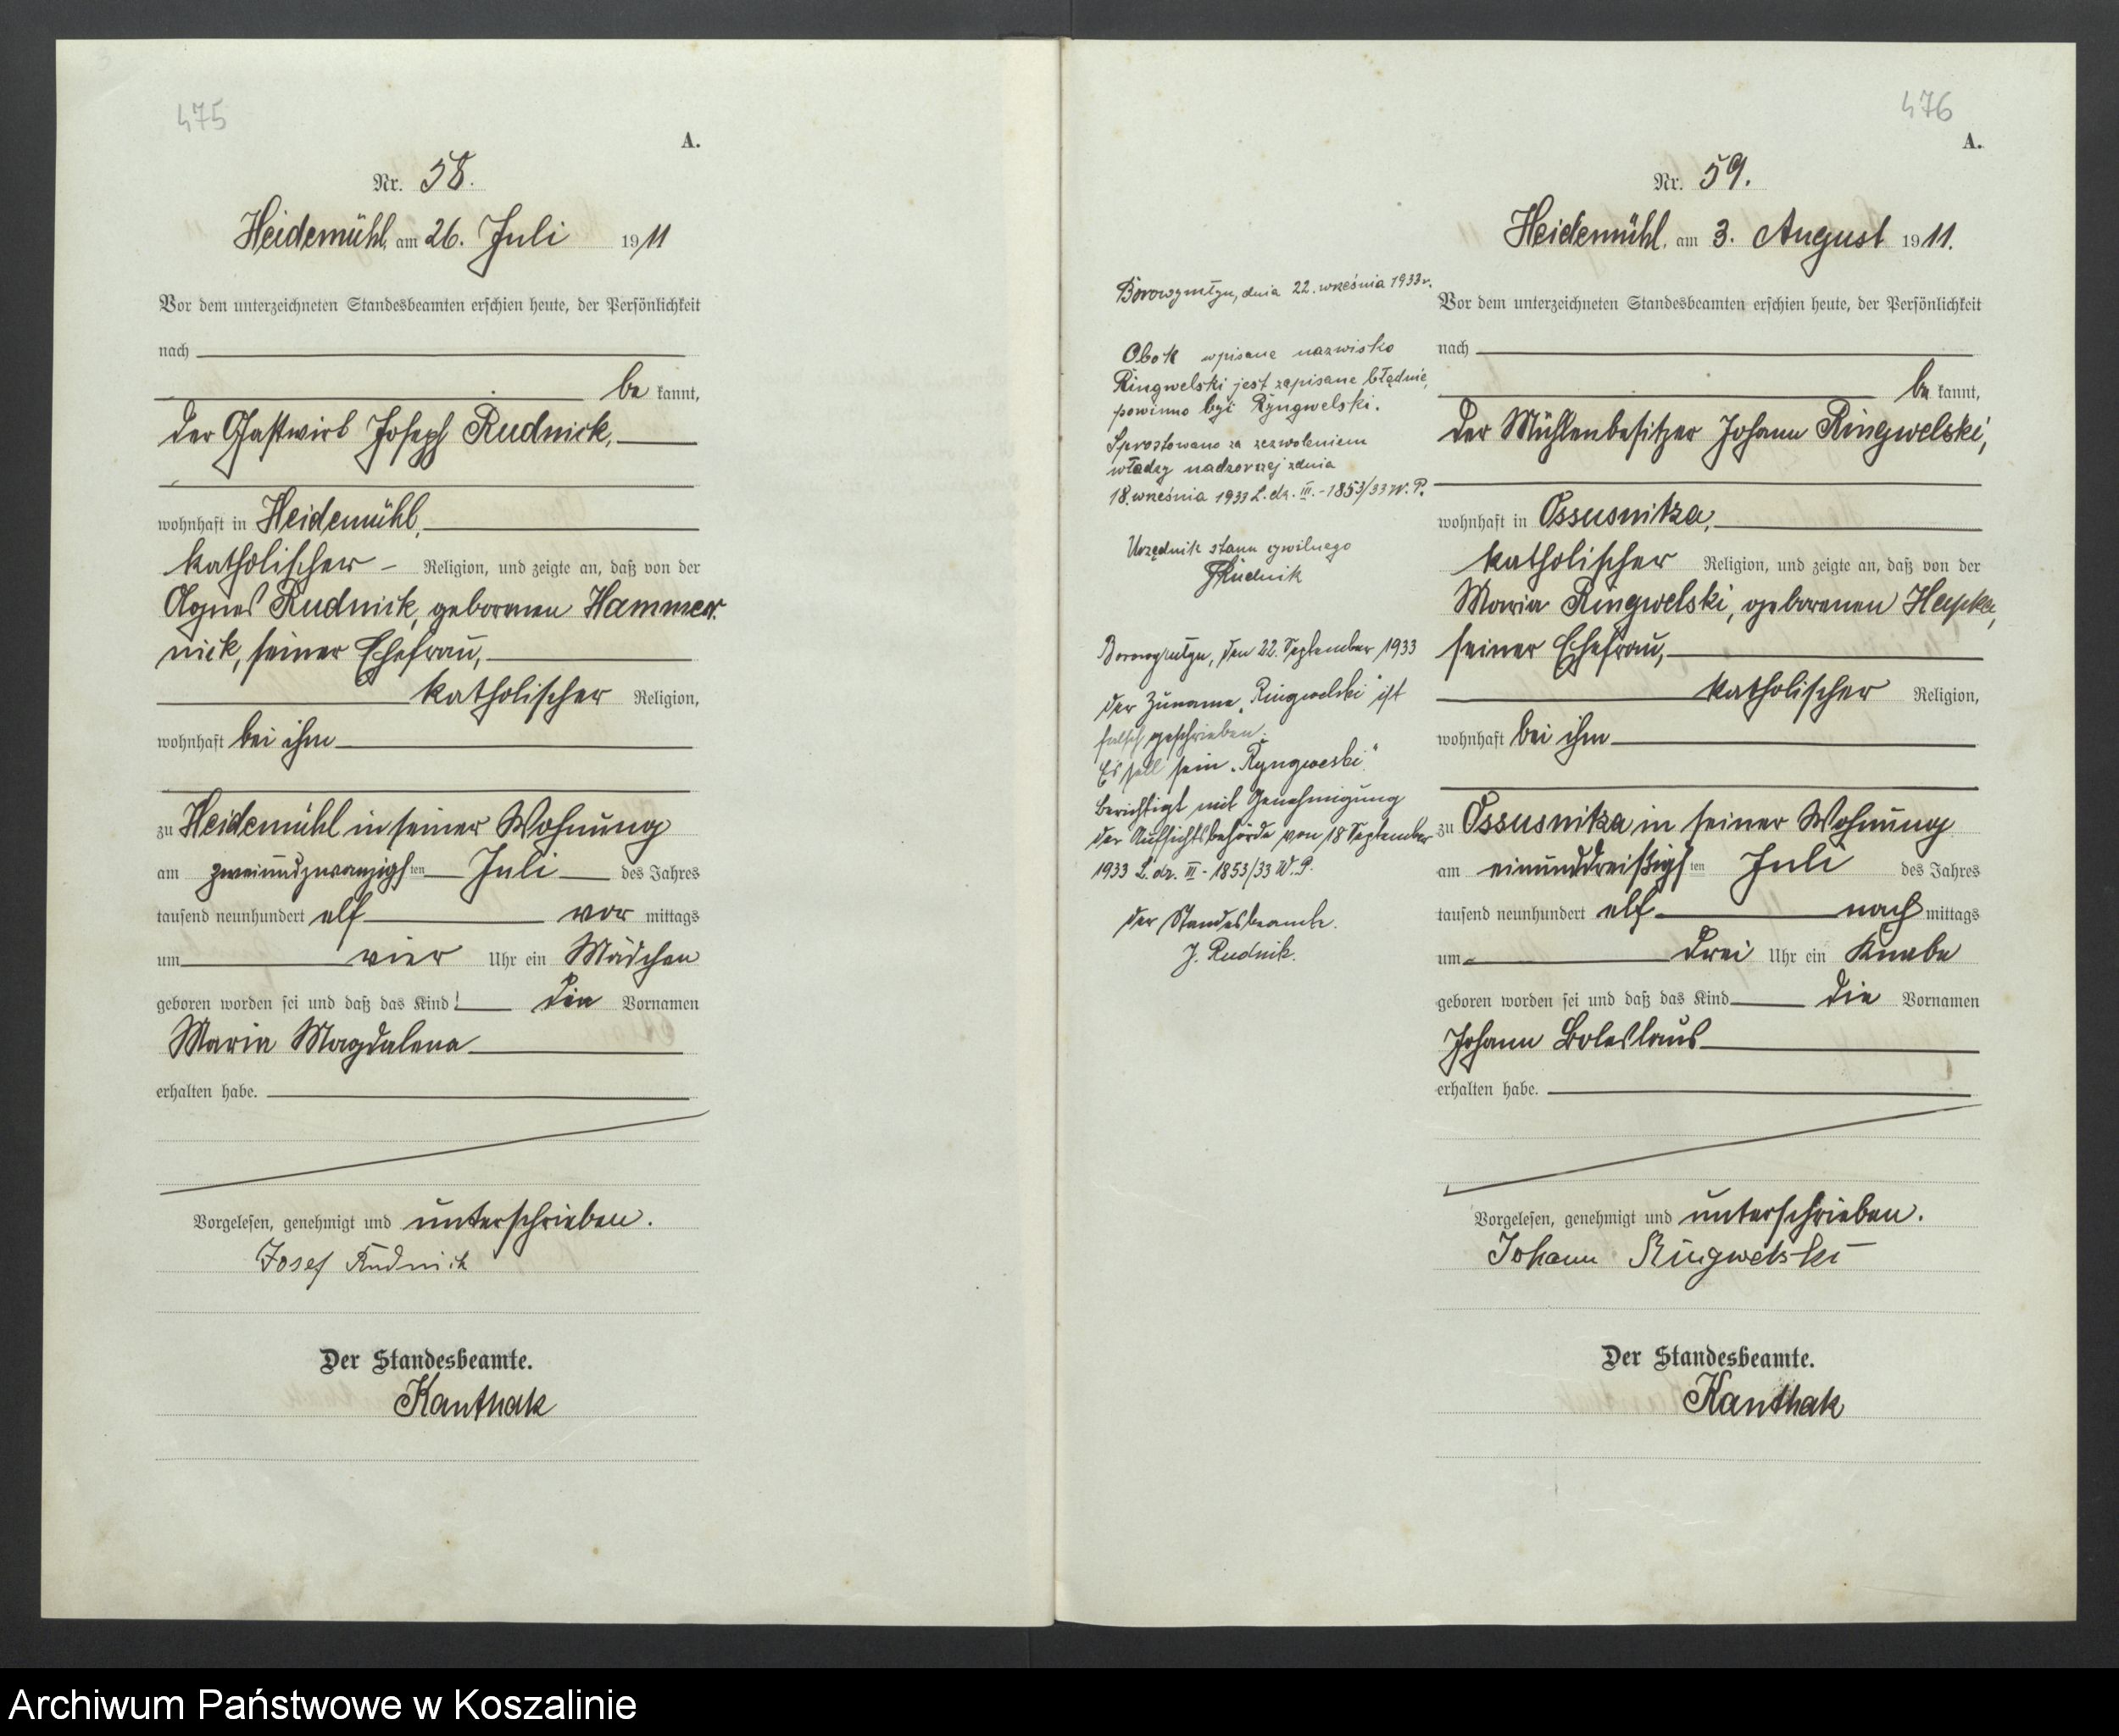 475
A.
Nr. 58.
Heidemühl, am 26. Juli 1911
Vor dem unterzeichneten Standesbeamten erschien heute, der Persönlichkeit
nach
be kannt,
der Gastwirt Joseph Rudnick,
wohnhaft in Heidemühl,
katholischer Religion, und zeigte an, daß von der
Agnes Rudnick, geborenen Hammer-
nick, seiner Ehefrau,
katholischer Religion,
wohnhaft bei ihm
zu Heidemühl in seiner Wohnung
am zweiundzwanzigsten Juli des Jahres
tausend neunhundert elf vor mittags
um vier Uhr ein Mädchen
geboren worden sei und daß das Kind die Vornamen
Maria Magdalena
erhalten habe.
Vorgelesen, genehmigt und unterschrieben.
Josef Rudnick
Der Standesbeamte.
Kanthak
476
A.
Nr. 59.
Heidemühl, am 3. August 1911.
Vor dem unterzeichneten Standesbeamten erschien heute, der Persönlichkeit
nach
be kannt,
der Mühlenbesitzer Johann Ringwelski,
wohnhaft in Ossusnitza,
katholischer Religion, und zeigte an, daß von der
Maria Ringwelski, geborenen Hepka,
seiner Ehefrau,
katholischer Religion,
wohnhaft bei ihm
zu Ossusnitza in seiner Wohnung
am einunddreißigsten Juli des Jahres
tausend neunhundert elf nach mittags
um drei Uhr ein Knabe
geboren worden sei und daß das Kind die Vornamen
Johann Boleslaus
erhalten habe.
Vorgelesen, genehmigt und unterschrieben.
Johann Ringwelski
Der Standesbeamte.
Kanthak
Borowymłyn, dnia 22. września 1933 r.
Obok wpisane nazwisko
Ringwelski jest zapisane błędnie,
powinno być Ryngwelski.
Sprostowano za zezwoleniem
władzy nadzorczej z dnia
18. września 1933 L. dz. III. - 1853/33 W. P.
Urzędnik stanu cywilnego
JRudnik
Borowymłyn, den 22. September 1933
Der Zuname „Ringwelski" ist
falsch geschrieben.
Es soll sein „Ryngweski"
Berichtigt mit Genehmigung
der Aufsichtsbehörde von 18 September
1933 L. dz. III - 1853/33 W. P.
Der Standesbeamte.
J. Rudnik.
Archiwum Państwowe w Koszalinie